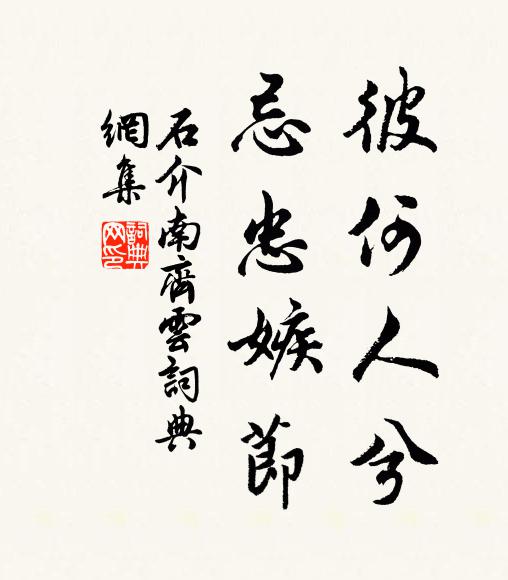 彼何人兮
忌忠嫉節
石介南齊雲詞典
網集
詞典
网印